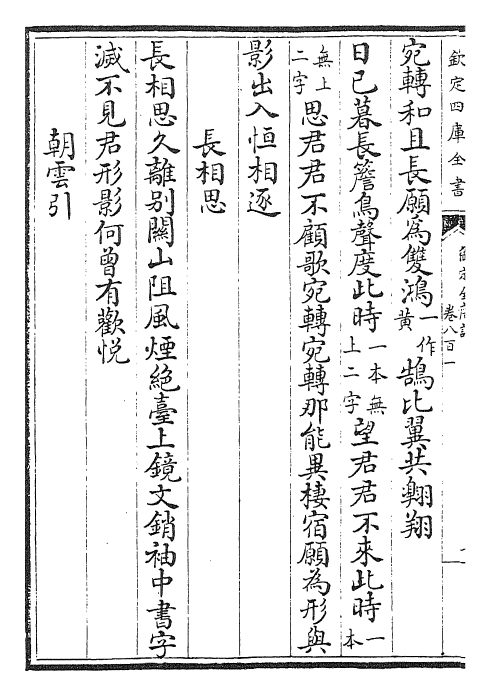 欽定四庫全書
卷八百一
宛轉和且長願為雙鴻一作黃鵠比翼共翺翔
日已暮長簷鳥聲度此時一本無上二字望君君不來此時一本
無上二字思君君不顧歌宛轉宛轉那能異棲宿願為形與
影出入恒相逐
長相思
長相思久離別關山阻風煙絕臺上鏡文銷袖中書字
滅不見君形影何曾有歡悅
朝雲引